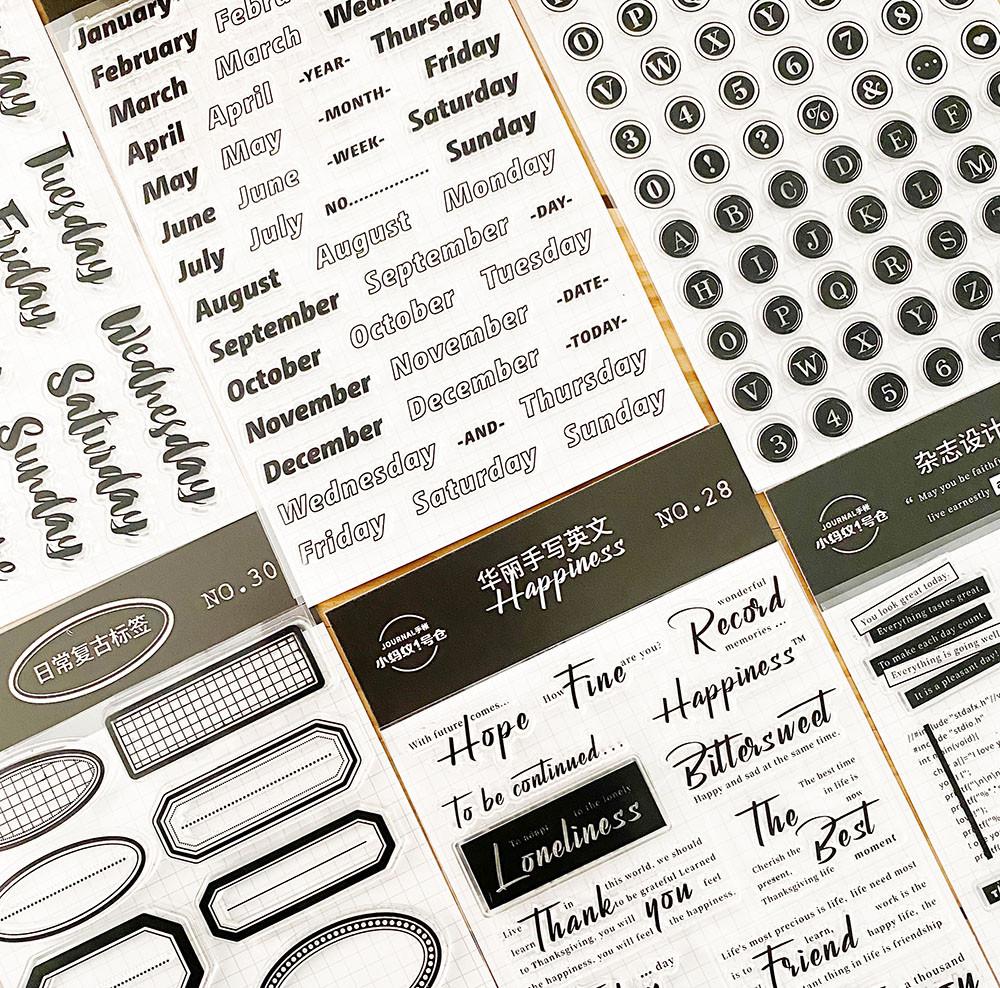 day
Tuesday
Friday
Wednesday
Saturday
Sunday
January
February
March
April
May
June
July
August
September
October
November
December
March
April
May
June
July
August
September
October
November
December
-YEAR-
-MONTH-
-WEEK-
NO.
Thursday
Friday
Saturday
Sunday
Monday
-DAY-
Tuesday
-DATE-
-TODAY-
Wednesday
-AND-
Thursday
Friday
Saturday
Sunday
P
Q
Y
8
0
X
7
W
6
V
5
&
4
%
3
?
E
F
!
D
M
0
C
L
B
K
S
A
J
R
Z
I
Q
Y
7
H
P
X
6
O
W
5
V
4
3
NO.30
日常复古标签
NO.28
华丽手写英文
Happiness
JOURNAL手帐
小蚂蚁1号仓
杂志设计
JOURNAL手帐
小蚂蚁1号仓
“ May you be faithf
live earnestly
With future comes...
Hope
How Fine are you?
wonderful
Record
memories ...
Happiness™
to be continued...
Bittersweet
Happy and sad at the same time.
To adapt to the lonely
Loneliness
The best time
in life is
now
The Best
Cherish the
present,
Thanksgiving life
moment
in this world, we should
Live Thank to be grateful Learned
learn you feel
to Thanksgiving, you will
the happiness, you will feel the happiness.
Life's most precious is life, life need most
is to learn, Friend work is the
happy life, the
thing in life is friendship
day
a thousand
You look great today.
Everything tastes great.
To make each day count.
Everything is going well
It is a pleasant day!
lude "stdafx.h"
"stdio.h"